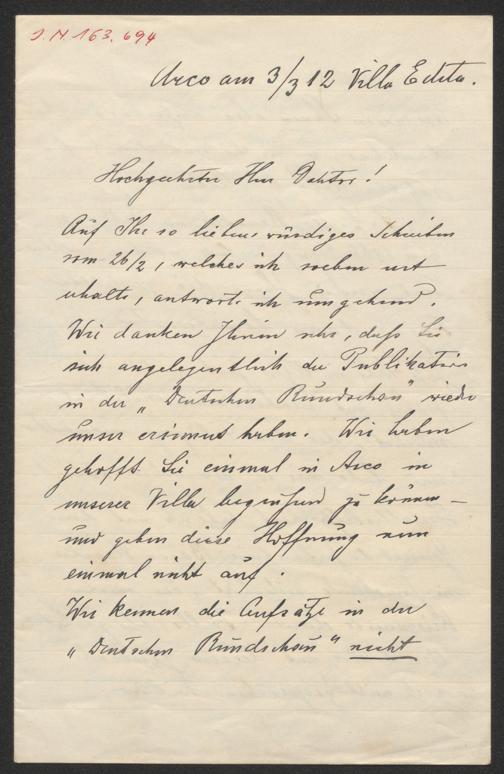 J.N. 163.694
Arco am 3/3 12 Villa Edita.
Hochgeehrter Herr Doktor!
Auf Ihr so liebenswürdiges Schreiben
vom 26/2, welches ich soeben erst
erhalte, antworte ich umgehend.
Wir danken Ihnen sehr, daß Sie
sich angelegentlich der Publikation
in der „Deutschen Rundschau" wieder
unser erinnert haben. Wir haben
gehofft Sie einmal in Arco in
unserer Villa begrüßen zu können –
und geben diese Hoffnung nun
einmal nicht auf.
Wir kennen die Aufsätze in der
„Deutschen Rundschau" nicht